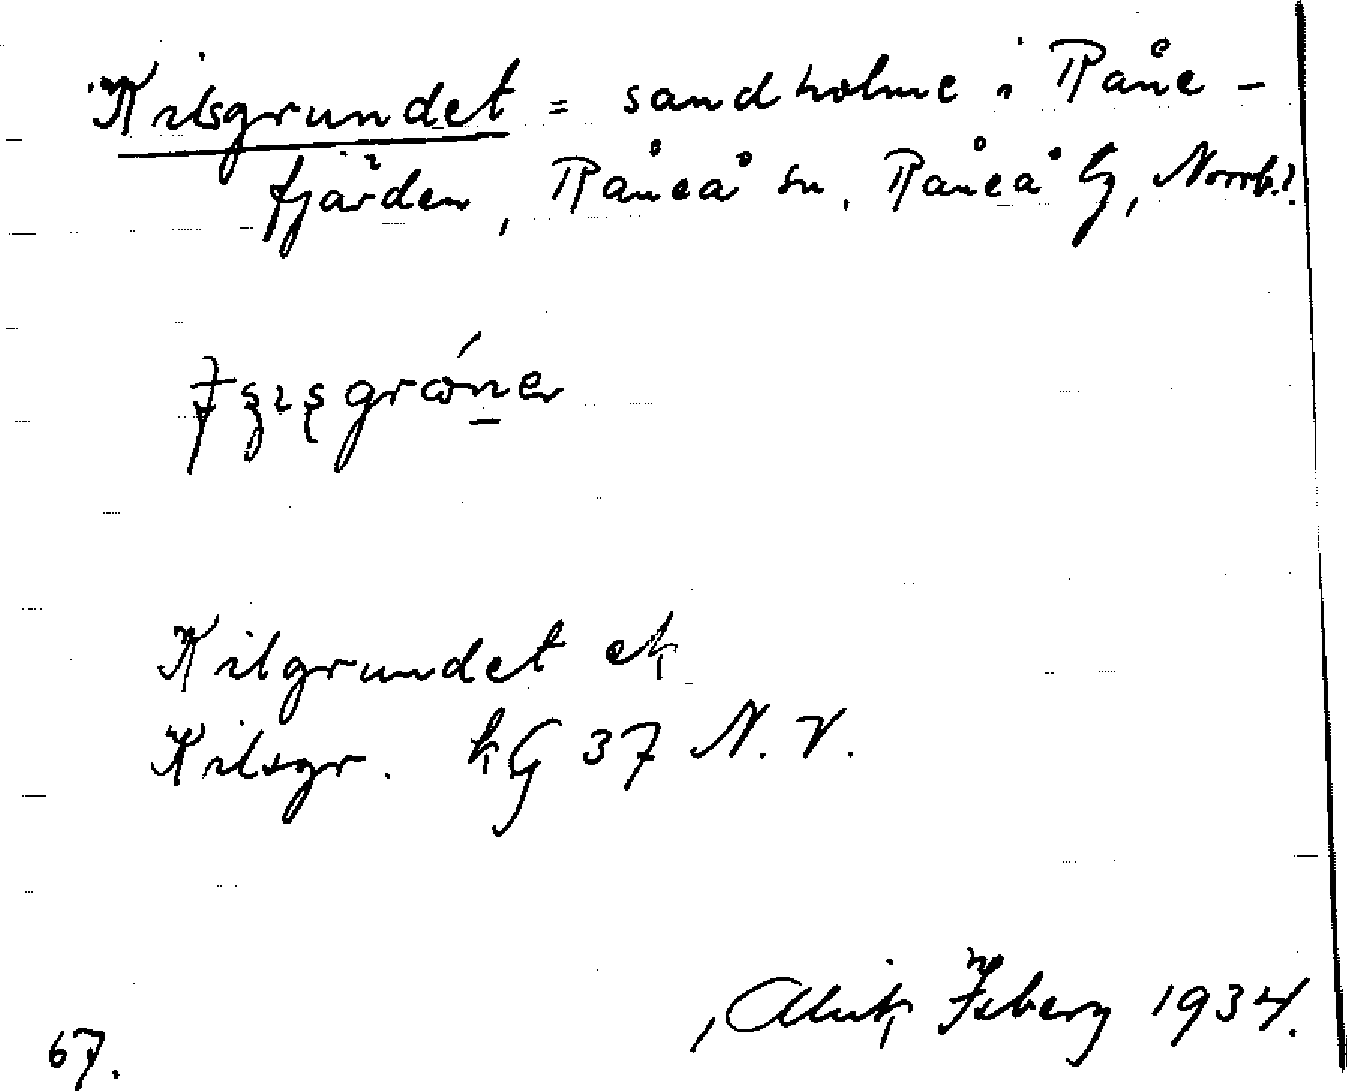 Kilsgrundet = sandholme i Råne-
fjärden, Råneå sn, Råneå tg, Norrb.l.
Kilgrundet ek
Kilsgr. kG 37 N.V.
Isberg 1934.
67.